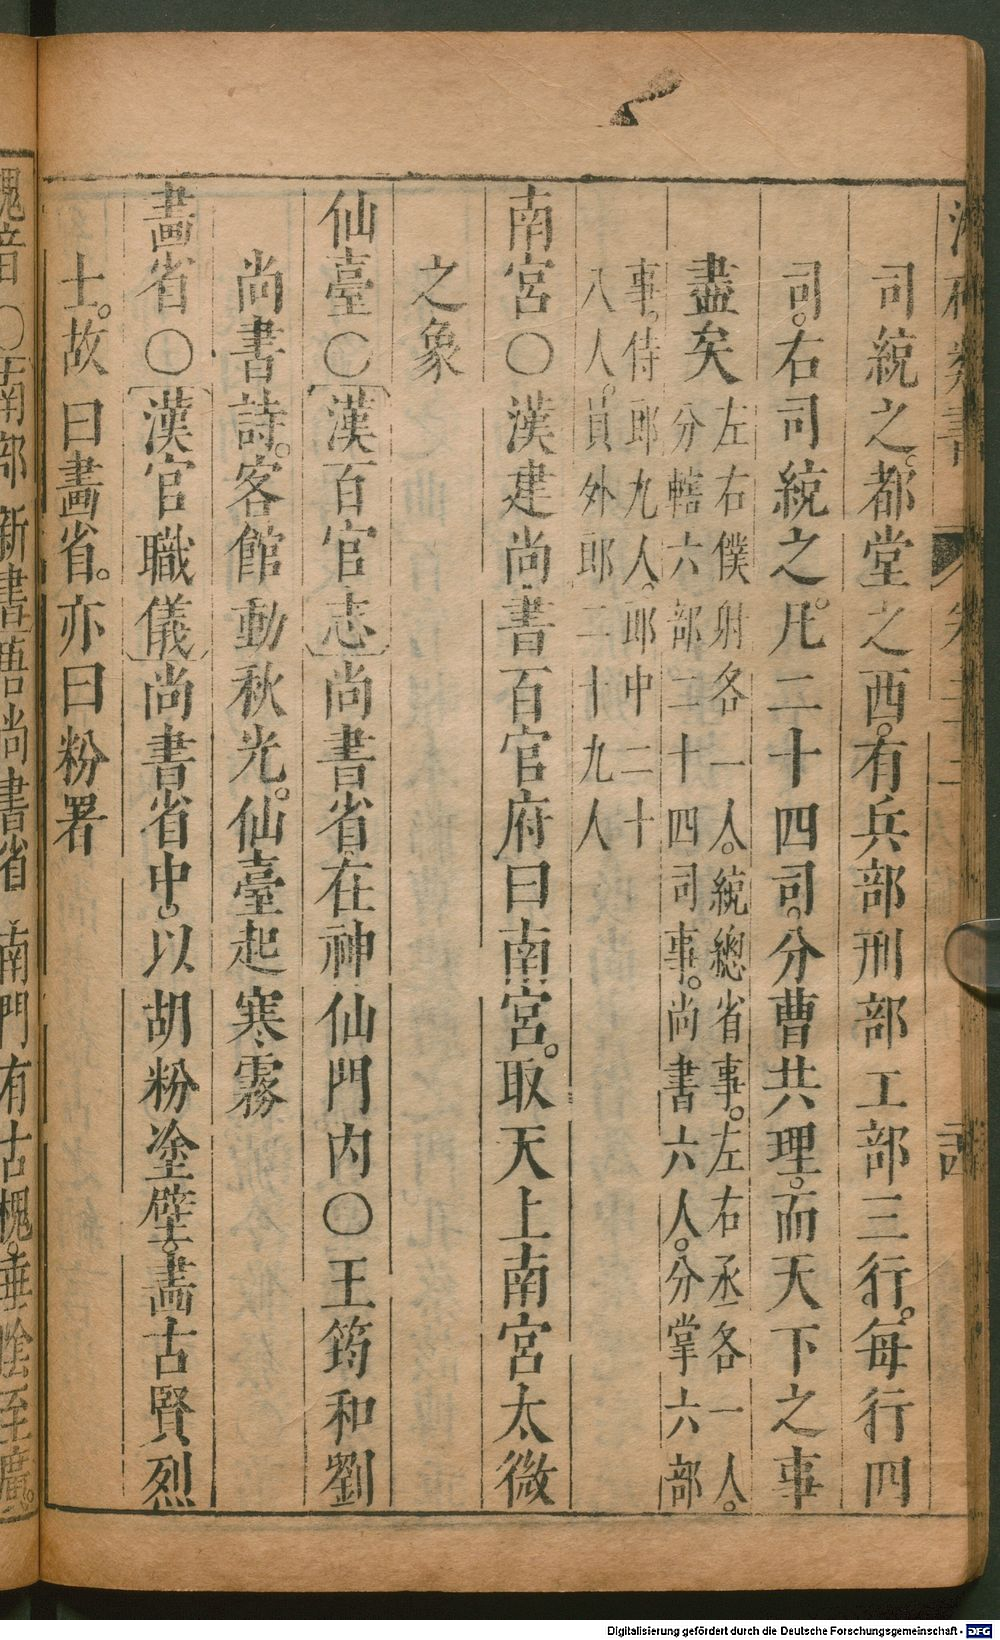 司統之。都堂之西。有兵部刑部工部三行。每行四
司。右司統之。凡二十四司。分曹共理。而天下之事
盡矣
左右僕射各一人。統總省事。左右丞各一人。
分轄六部二十四司事。尚書六人。分掌六部
事。侍郎九人。郎中二十
八人。員外郎二十九人
南宮〇漢建尚書百官府曰南宮。取天上南宮太微
之象
仙臺〇漢百官志尚書省在神仙門内〇王筠和劉
尚書詩。客館動秋光。仙臺起寒霧
畫省〇漢官職儀尚書省中。以胡粉塗壁。畫古賢烈
士。故曰畫省。亦曰粉署
槐音〇南部新書語尚書省南門有古槐。垂陰至廣。
Digitalisierung gefördert durch die Deutsche Forschungsgemeinschaft - DFG